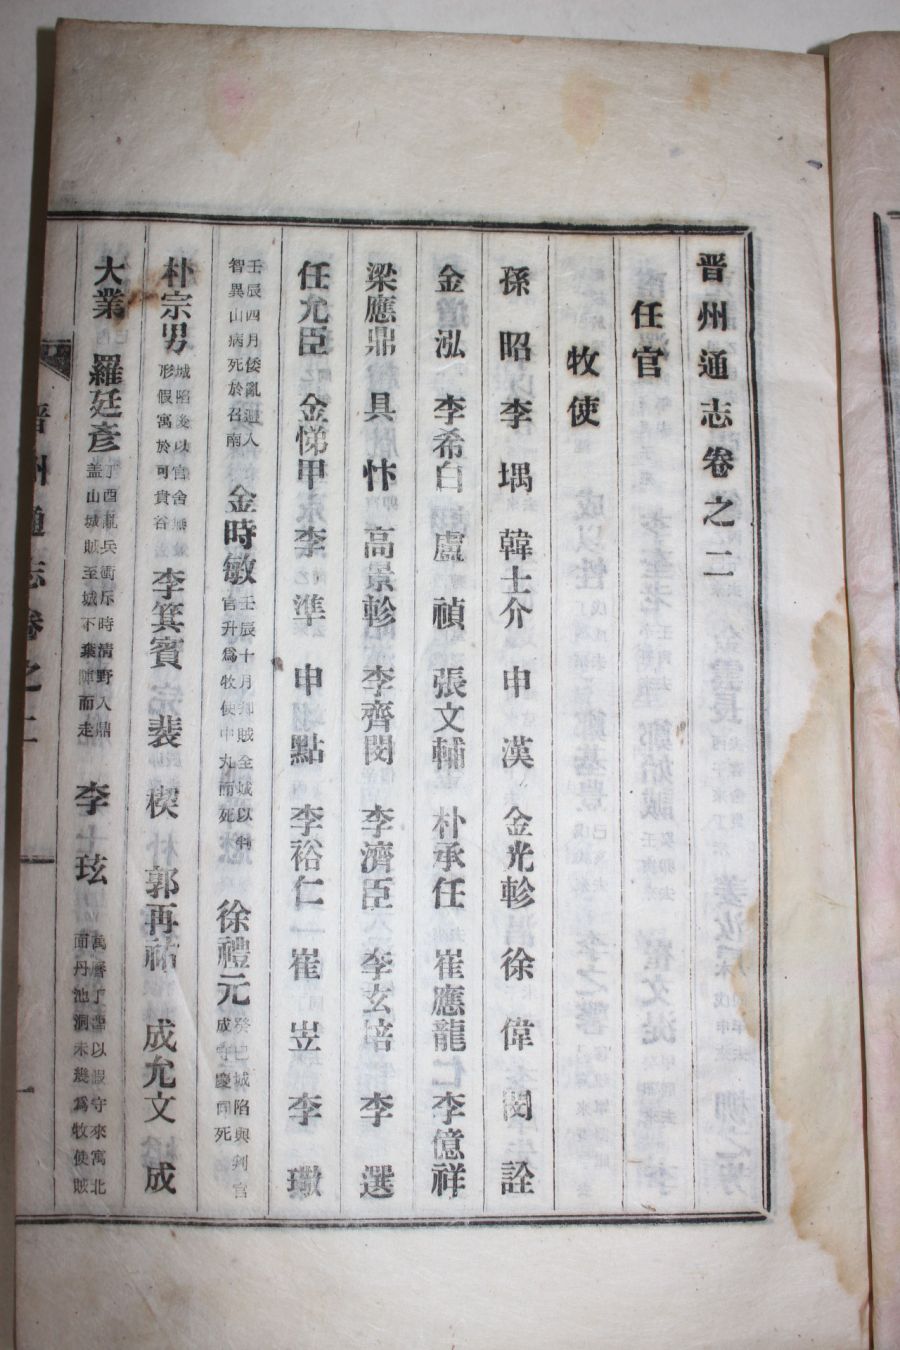 晋州通志卷之二
任官
牧使
孫昭 李堣 韓士介 申漢 金光軫 徐偉 閔詮
金泓 李希白 盧禎 張文輔 朴承任 崔應龍 李億祥
梁應鼎 具忭 高景軫 李齊閔 李濟臣 李玄培 李選
任允臣 金悌甲 李準 申點 李裕仁 崔岦 李璥
壬辰四月倭亂遁入智異山病死於召南 金時敏 壬辰十月判賊全城以官升爲牧使中丸而死 徐禮元 癸巳城陷與判官成守慶同死
朴宗男 城陷後以官舍形假寓於可貴谷 李箕賓 裴楔 郭再祐 成允文 成
大業 羅廷彥 丁酉亂兵衝斥時清野入鼎蓋山城賊至城不棄陣而走 李士玹 萬曆丁以設守來寓北面丹池洞未幾爲牧使賊
晋州通志卷之二